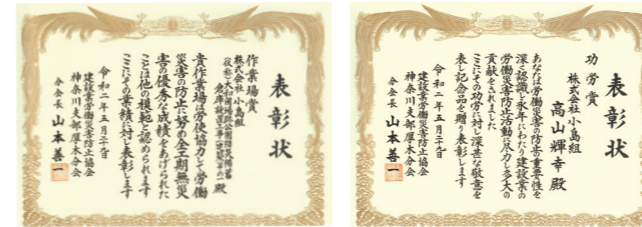 表彰状
作業場賞
株式会社 小島組
殿
貴作業場は労使協力して労働
災害の防止に努め全工期無災
害の優秀な成績をあげられた
ことは他の模範と認められます
ここにその業績に対し表彰します
令和二年五月二十日
建設業労働災害防止協会
神奈川支部厚木分会
分会長 山本善一
表彰状
功労賞
株式会社小島組
高山輝幸 殿
あなたは労働災害の防止の重要性を
深く認識し永年にわたり建設業の
労働災害防止活動に尽力し多大の
貢献をされました
ここにその功労に対し深甚な敬意を
表し記念品を贈り表彰します
令和二年五月二十日
建設業労働災害防止協会
神奈川支部厚木分会
分会長 山本善一